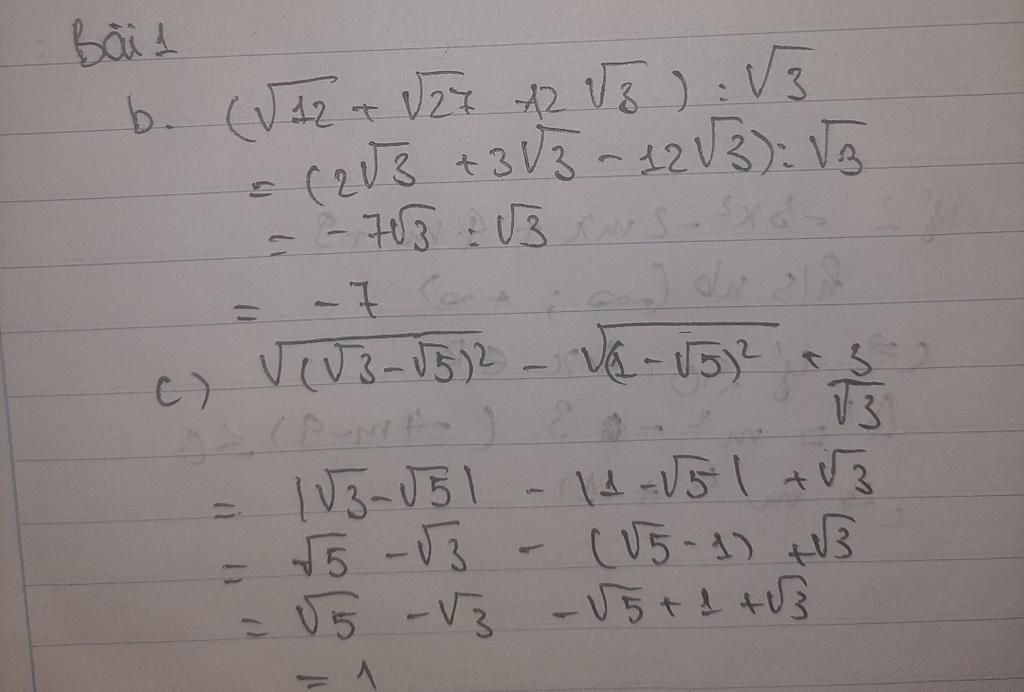 Bài 1
b. (√12 + √27 - 12√3) : √3
= (2√3 + 3√3 - 12√3) : √3
= -7√3 : √3
= -7
c) √(√3-√5)² - √(1-√5)² + 3/√3
= |√3-√5| - |1-√5| + √3
= √5 - √3 - (√5-1) + √3
= √5 - √3 - √5 + 1 + √3
= 1